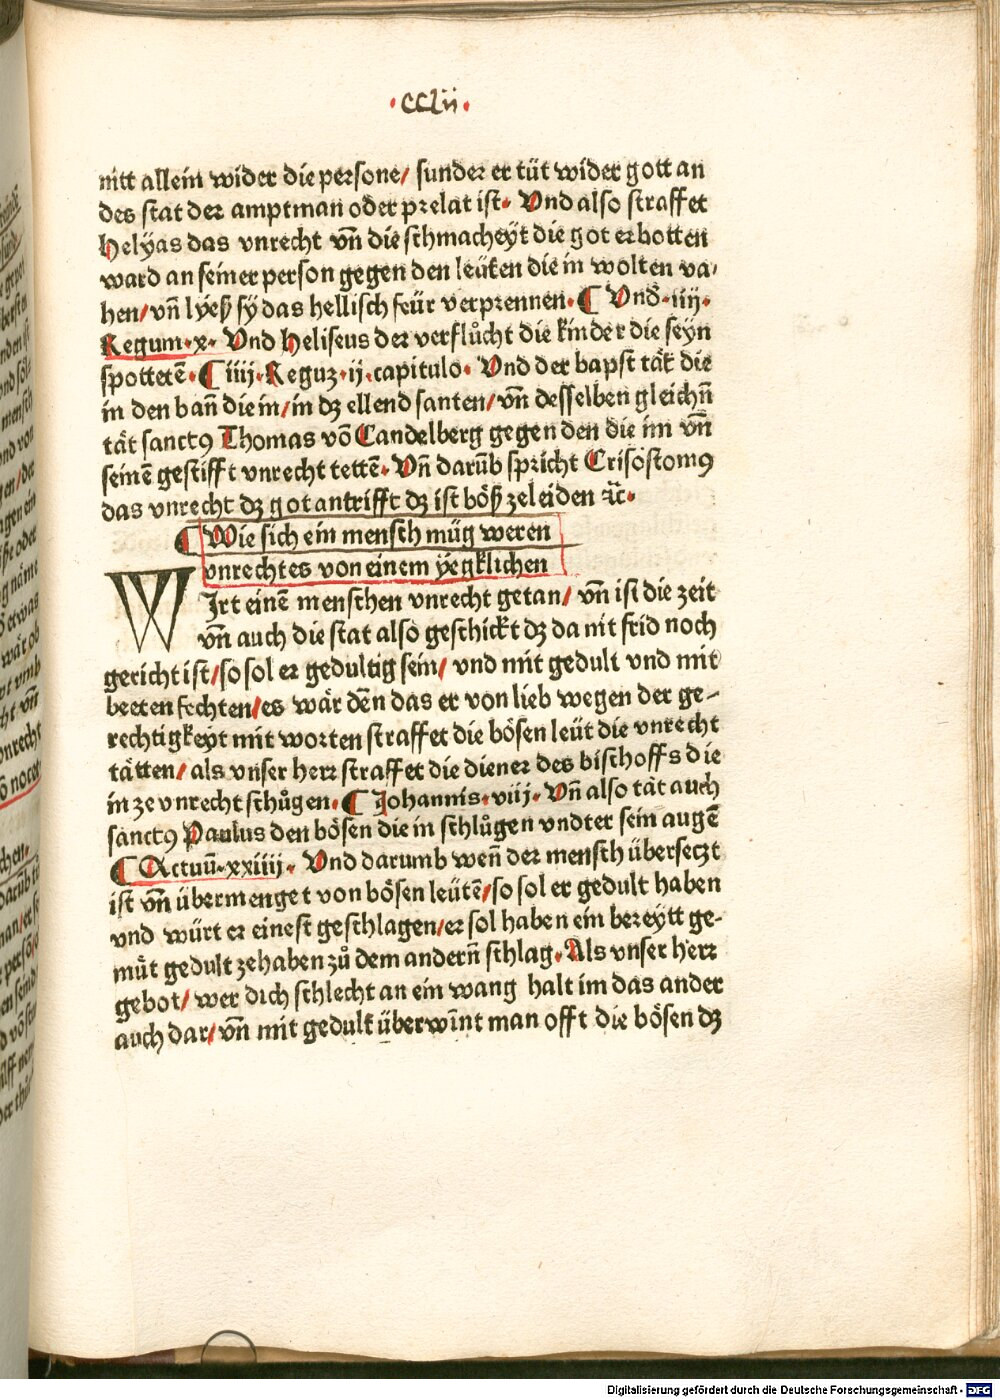 ·cclii·
nitt allein wider die persone/ sunder er tüt wider gott an
des stat der amptman oder prelat ist· Vnd also straffet
Helÿas das vnrecht vn̄ die schmacheÿt die got erbotten
ward an seiner person gegen den leüten die in wolten va/
hen/ vn̄ lÿeß sÿ das hellisch feür verprennen· ¶ Vnd̄·iiij·
Regum·x· Vnd Heliseus der verflůcht die kinder die seÿn
spottetē· ¶ iiij·Reguꝫ·ij·capitulo· Vnd der bapst tät die
in den ban̄ die in/ in dꝫ ellend santen/ vn̄ desselben gleichn̄
tät sanctꝰ Thomas vō Candelberg gegen den die im vn̄
seinē gestifft vnrecht tettē· Vn̄ darūb spricht Crisostomꝰ
das vnrecht dꝫ got antrifft dꝫ ist böß ze leiden ꝛc̄·
¶ Wie sich ein mensch müg weren
vnrechtes von einem ÿegklichen
WIrt einē menschen vnrecht getan/ vn̄ ist die zeit
vn̄ auch die stat also geschickt dꝫ da nit frid noch
gericht ist/ so sol er gedultig sein/ vnd mit gedult vnd mit
beeten fechten/ es wär dēn das er von lieb wegen der ge-
rechtigkeÿt mit worten straffet die bösen leüt die vnrecht
tätten/ als vnser herr straffet die diener des bischoffs die
in ze vnrecht schůgen· ¶ Johannis·viij· Vn̄ also tät auch
sanctꝰ Paulus den bösen die in schlůgen vndter sein augē
¶ Actuū·xxiiij· Vnd darumb wen̄ der mensch übersetzt
ist vn̄ übermenget von bösen leütē/ so sol er gedult haben
vnd würt er einest geschlagen/ er sol haben ein bereÿtt ge-
müt gedult ze haben zů dem andern̄ schlag· Als vnser herr
gebot/ wer dich schlecht an ein wang halt im das ander
auch dar/ vn̄ mit gedult überwīnt man offt die bösen dꝫ
Digitalisierung gefördert durch die Deutsche Forschungsgemeinschaft - DFG